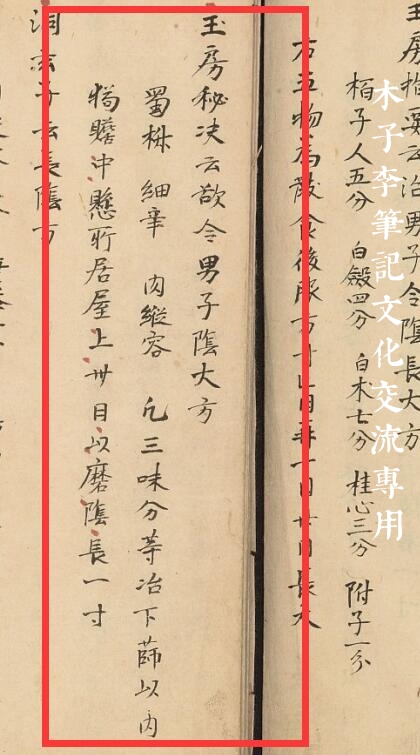 玉房指要云治男子令陰長大方
木子李筆記文化交流專用
栢子人五分 白蘞四分 白木七分 桂心三分 附子一分
右五物為散食後服方寸匕日再一日廿日長大
玉房秘决云欲令男子陰大方
蜀椒 細辛 肉縱容 凡三味分等冶下篩以內
狗膽中懸所居屋上卅日以磨陰長一寸
洞玄子云長陰方